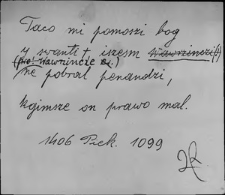 Taco mi pomoszi bog
y swanti † iszem wawrzinczi(!)
(pro: Wawrzincze ...)
ne pobral penandzi,
Kgimsze on prawo mal.
1406 Piek. 1099